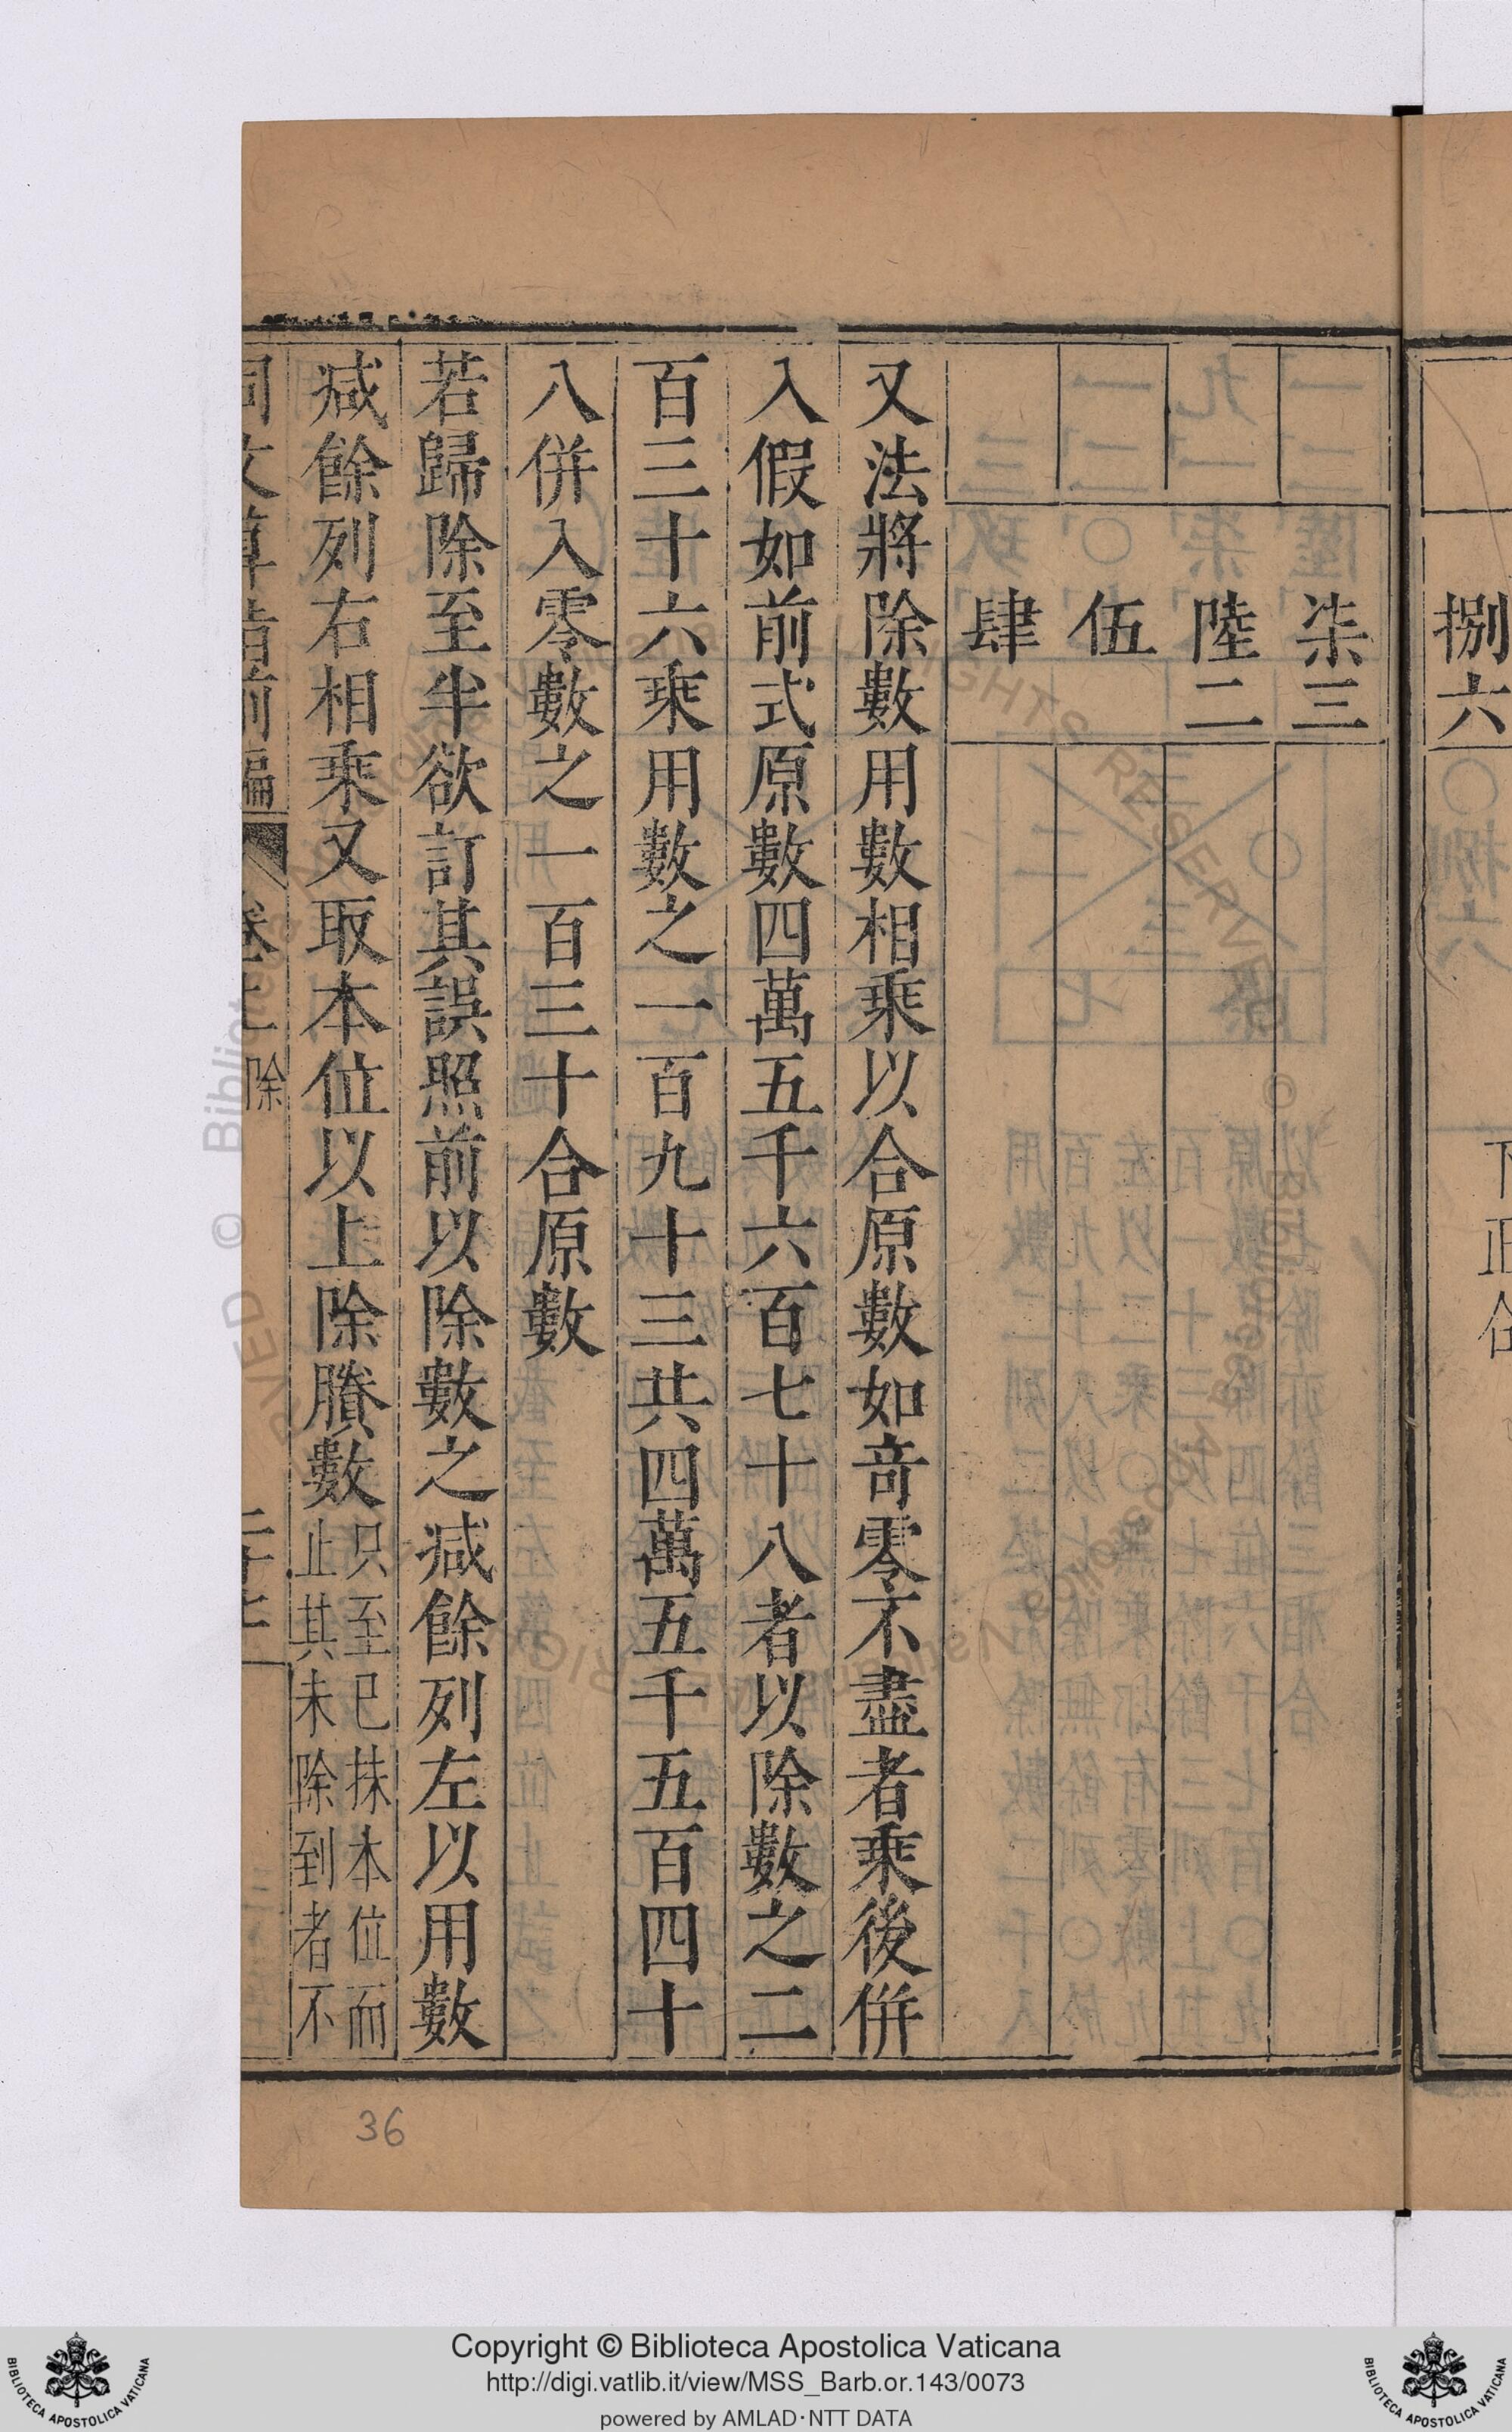 捌六
下正合
柒三
陸二
伍
肆
又法將除數用數相乘以合原數如竒零不盡者乘後併
入假如前式原數四萬五千六百七十八者以除數之二
百三十六乘用數之一百九十三共四萬五千五百四十
八併入零數之一百三十合原數
若歸除至半欲訂其誤照前以除數之减餘列左以用數
减餘列右相乘又取本位以上除賸數只至已抹本位而
止其未除到者不
同文算指前編 卷上 除
36
Copyright © Biblioteca Apostolica Vaticana
http://digi.vatlib.it/view/MSS_Barb.or.143/0073
powered by AMLAD·NTT DATA
BIBLIOTECA APOSTOLICA VATICANA
BIBLIOTECA APOSTOLICA VATICANA